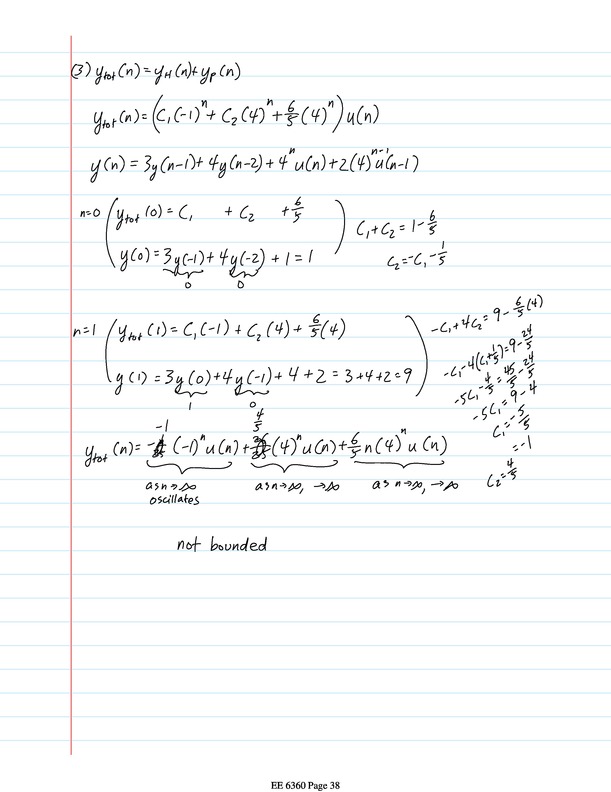 (3) y_tot(n) = y_H(n) + y_P(n)
y_tot(n) = (C₁(-1)ⁿ + C₂(4)ⁿ + 6/5 (4)ⁿ) u(n)
y(n) = 3y(n-1) + 4y(n-2) + 4ⁿu(n) + 2(4)ⁿ⁻¹u(n-1)
n=0 ( y_tot(0) = C₁ + C₂ + 6/5 ) C₁ + C₂ = 1 - 6/5
y(0) = 3y(-1) + 4y(-2) + 1 = 1 C₂ = -C₁ - 1/5
0 0
n=1 ( y_tot(1) = C₁(-1) + C₂(4) + 6/5 (4) )
y(1) = 3y(0) + 4y(-1) + 4 + 2 = 3+4+2=9
1 0
-C₁ + 4C₂ = 9 - 6/5 (4)
-C₁ - 4(C₁ + 1/5) = 9 - 24/5
-5C₁ - 4/5 = 45/5 - 24/5
-5C₁ = 9 - 4
C₁ = -5/5
= -1
C₂ = 4/5
-1 4/5
y_tot(n) = (-1)ⁿu(n) + (4)ⁿu(n) + 6/5 n(4)ⁿ u(n)
as n→∞ as n→∞, →∞ as n→∞, →∞
oscillates
not bounded
EE 6360 Page 38